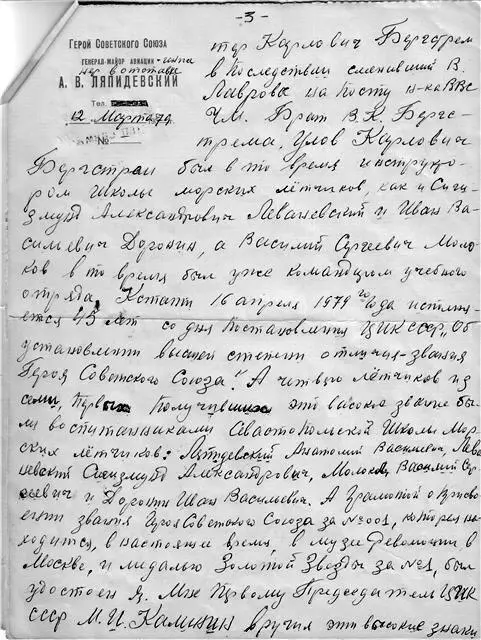 -3-
ГЕРОЙ СОВЕТСКОГО СОЮЗА
ГЕНЕРАЛ-МАЙОР АВИАЦИИ-инже
нер в отставке
А. В. ЛЯПИДЕВСКИЙ
Тел.
12 Марта 79
№
тор Карлович Бергстрем
в последствии сменивший В.
Лаврова на посту н-ка ВВС
Ч.М. Брат В.К. Берг-
стрема, Улов Карлович
Бергстрем был в то время инструкто-
ром Школы морских лётчиков, как и Сиги-
змунд Александрович Леваневский и Иван Ва-
сильевич Доронин, а Василий Сергеевич Моло-
ков в то время был уже командиром учебного
отряда. Кстати 16 апреля 1979 го года исполня-
ется 45 лет со дня Постановления ЦИК СССР „Об
установлении высшей степени отличия-звания
Героя Советского Союза". А четверо лётчиков из
семи, первых получивших это высокое звание бы-
ли воспитанниками Севастопольской Школы Мор-
ских лётчиков: Ляпидевский Анатолий Васильевич, Лева-
невский Сигизмунд Александрович, Молоков Василий Сер-
геевич и Доронин Иван Васильевич. А Грамотой о присво-
ении звания Героя Советского Союза за №001, которая на-
ходится, в настоящее время, в музее Революции в
Москве, и медалью Золотой Звезды за №1, был
удостоен я. Мне первому Председатель ЦИК
СССР М.И. Калинин вручил эти высокие знаки